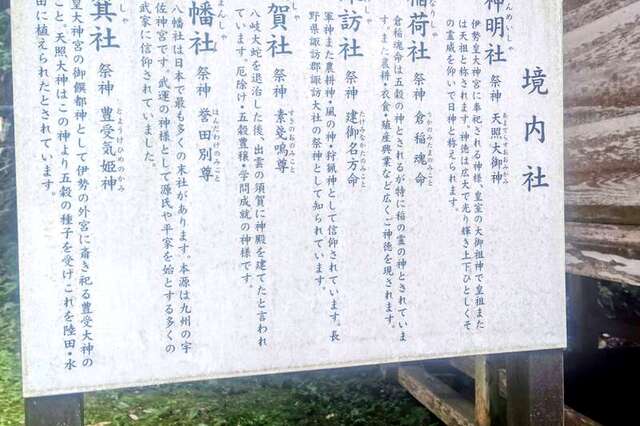 境内社
神明社 祭神 天照大御神
んめいしゃ
あまてらすおおみかみ
伊勢皇大神宮に奉祀される神様、皇室の大御祖神で皇祖また
は天祖と称されます。神徳は広大で光り輝き上下ひとしくそ
の霊威を仰いで日神と称えられます。
稲荷社 祭神 倉稲魂命
なりしゃ
うかのみたまのみこと
倉稲魂命は五穀の神とされるが特に稲の霊の神とされていま
す。また農耕・衣食・殖産興業など広くご神徳を現されます。
訪社 祭神 建御名方命
しゃ
たけみなかたのみこと
軍神また農耕神・風の神・狩猟神として信仰されています。長
野県諏訪郡諏訪大社の祭神として知られています。
賀社 祭神 素戔嗚尊
しゃ
すさのおのみこと
八岐大蛇を退治した後、出雲の須賀に神殿を建てたと言われ
ています。厄除け・五穀豊穣・学問成就の神様です。
幡社 祭神 誉田別尊
まんしゃ
ほんだわけのみこと
八幡社は日本で最も多くの末社があります。本源は九州の宇
佐神宮です。武運の神様として源氏や平家を始とする多くの
武家に信仰されていました。
其社 祭神 豊受気姫神
しゃ
とようけひめのかみ
皇大神宮の御饌都神として伊勢の外宮に斎き祀る豊受大神の
こと。天照大神はこの神より五穀の種子を受けこれを陸田・水
田に植えられたとされています。